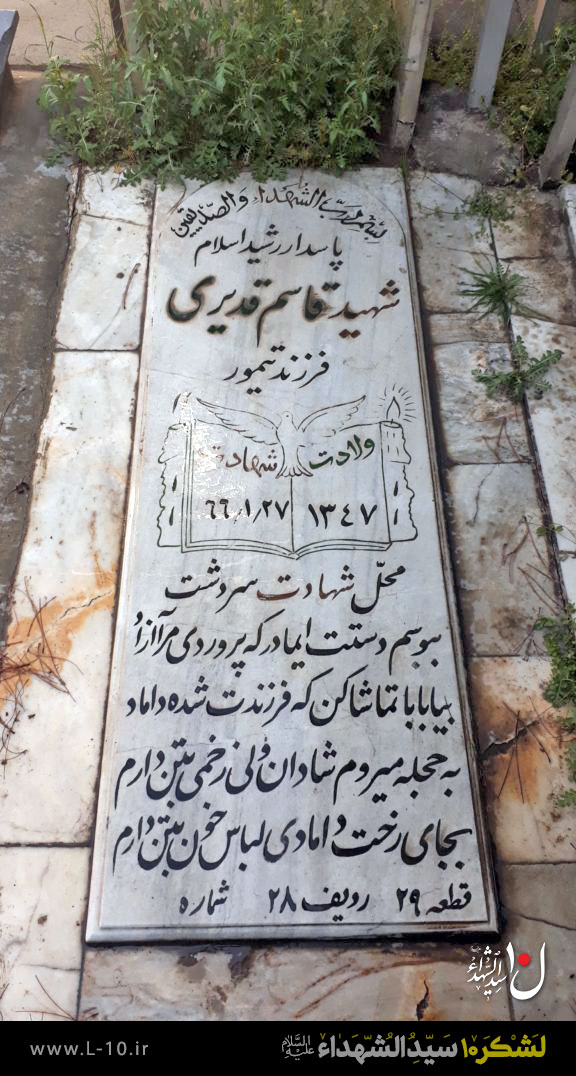 بسم رب الشهداء و الصدیقین
پاسدار رشید اسلام
شهید قاسم قدیری
فرزند تیمور
ولادت شهادت
۱۳۴۷ ۶۶/۱/۲۷
محلّ شهادت سردشت
ببوسم دستت ایمادر که پروردی مرا آزاد
بیا بابا تماشا کن که فرزندت شده داماد
به حجله میروم شادان ولی زخمی بتن دارم
بجای رخت دامادی لباس خون بتن دارم
قطعه ۲۹ ردیف ۲۸ شماره
ن سیدالشهداء
لَشْکَر۱۰ سَیِّدُالشُّهَداءْ عَلَیْهِ السَّلام
www.L-10.ir